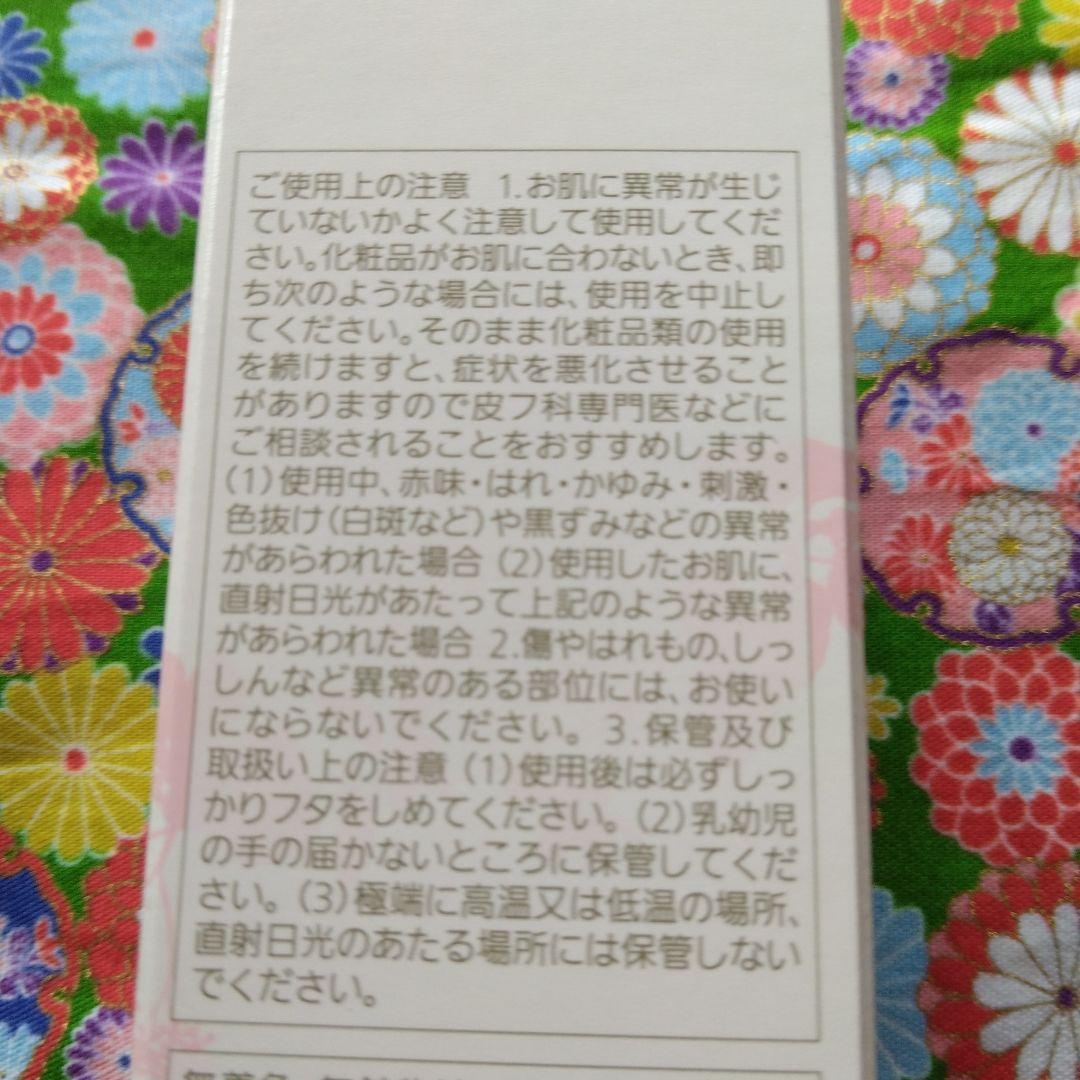 ご使用上の注意 1.お肌に異常が生じ
ていないかよく注意して使用してくだ
さい。化粧品がお肌に合わないとき、即
ち次のような場合には、使用を中止し
てください。そのまま化粧品類の使用
を続けますと、症状を悪化させること
がありますので皮フ科専門医などに
ご相談されることをおすすめします。
(1)使用中、赤味・はれ・かゆみ・刺激・
色抜け(白斑など)や黒ずみなどの異常
があらわれた場合 (2)使用したお肌に、
直射日光があたって上記のような異常
があらわれた場合 2.傷やはれもの、しっ
しんなど異常のある部位には、お使い
にならないでください。 3.保管及び
取扱い上の注意 (1)使用後は必ずしっ
かりフタをしめてください。(2)乳幼児
の手の届かないところに保管してくだ
さい。(3)極端に高温又は低温の場所、
直射日光のあたる場所には保管しない
でください。